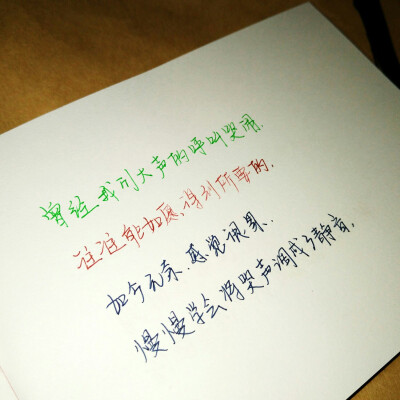 曾经我们大声的呼叫哭闹.
往往能如愿、得到所要的.
如今无奈、再
慢慢学会将哭声调成了静音.